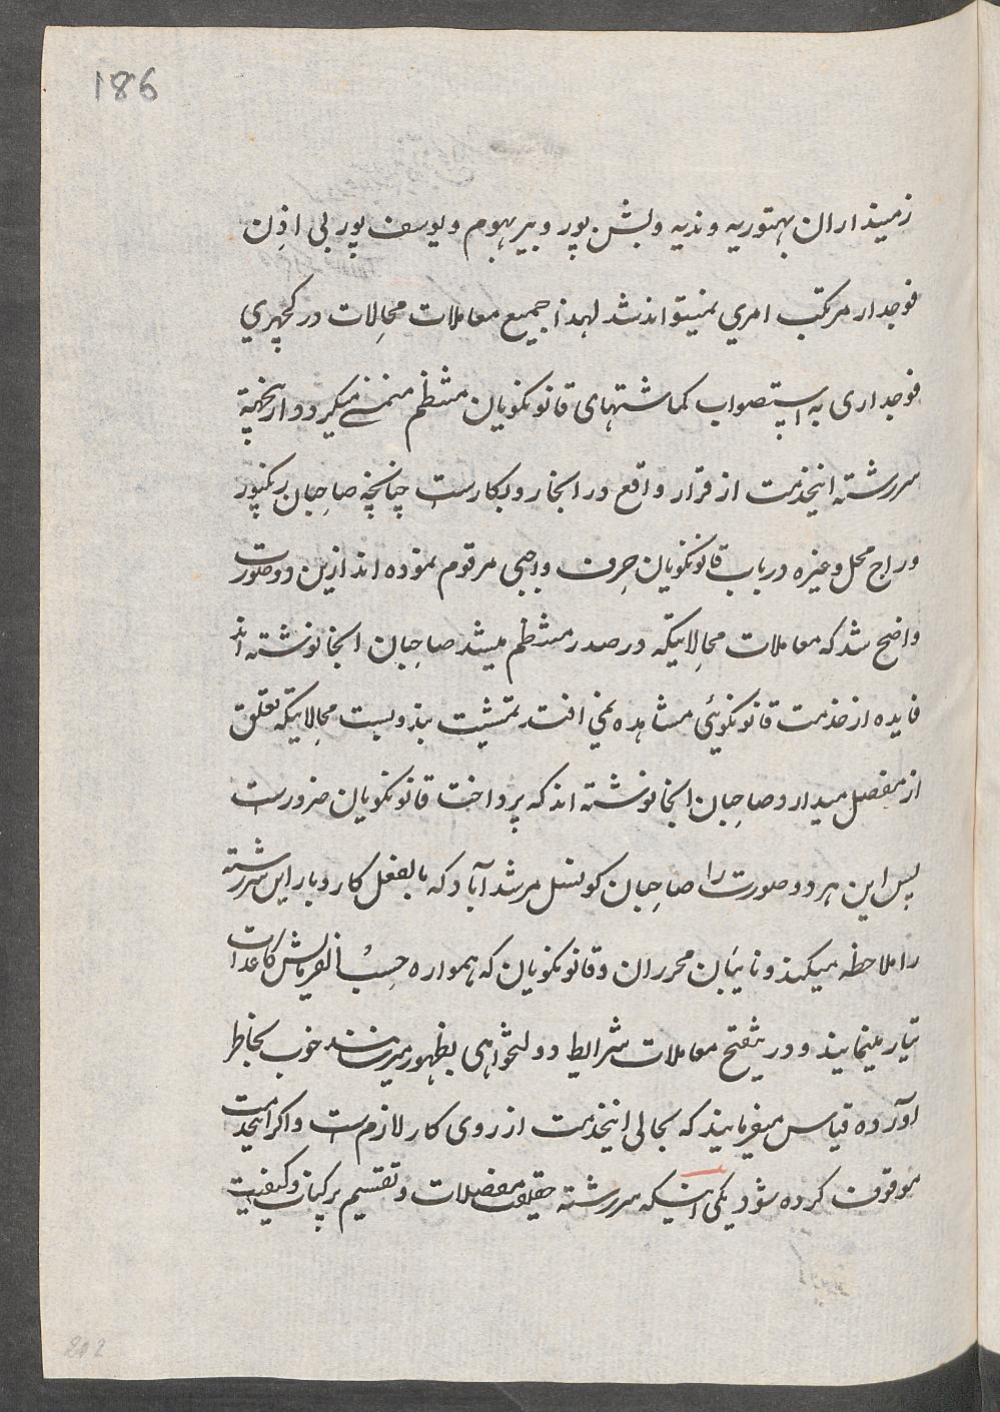 186
زمینداران بهتوریه و ندیه و بشن پور و بیربهوم و یوسف پور بی اذن
فوجدار مرتکب امری نمیتواند شد لهذا جمیع معاملات محالات در کچهری
فوجداری به استصواب کماشتهای قانونکویان منتظم میکردد ازینجهة
سررشته اینخدمت از قرار واقع در انجا روبکارست چنانچه صاحبان رنکپور
و راج محل وغیره در باب قانونکویان حرف واجبی مرقوم نموده اند ازین دو صورت
واضح شد که معاملات محالاتیکه در صدر منتظم میشد صاحبان انجا نوشته اند
فایده از خدمت قانونکویئی مشاهده نمی افتد تمشیت بندوبست محالاتیکه تعلق
از مفصل میدارد صاحبان انجا نوشته اند که پرداخت قانونکویان ضرورست
پس این هر دو صورت را صاحبان کونسل مرشدآباد که بالفعل کاروبار این سررشته
را ملاحظه میکنند و نایبان محرران و قانونکویان که همواره حسب الفرمایش کاغذات
تیار مینمایند و در تنقیح معاملات شرایط دولتخواهی بظهور میرسانند خوب بخاطر
آورده قیاس میفرمایند که بحالی اینخدمت از روی کار لازمست و اکر اینخدمت
موقوف کرده شود یکی اینکه سررشته حقیقت مفصلات و تقسیم پرکنات و کیفیت
202